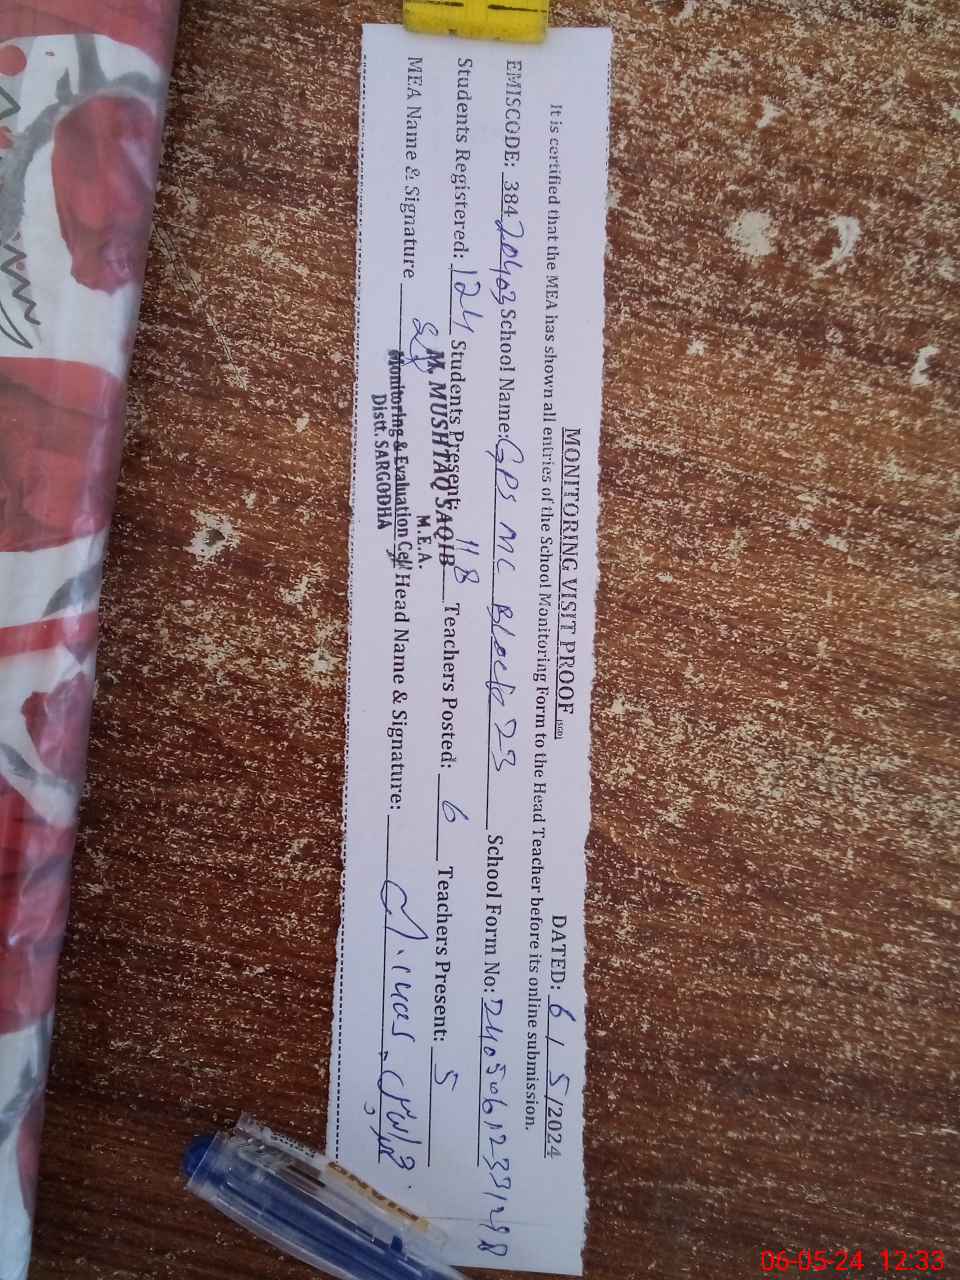 MONITORING VISIT PROOF
DATED: 6/5/2024
It is certified that the MEA has shown all entries of the School Monitoring Form to the Head Teacher before its online submission.
EMISCODE: 38420403 School Name: GPS MC Block 23 School Form No:
Students Registered: 124 Students Present: 118 Teachers Posted: 6 Teachers Present: 5
MEA Name & Signature Head Name & Signature:
M. MUSHTAQ SAQIB
M.E.A.
Monitoring & Evaluation Cell
Distt. SARGODHA
06-05-24 12:33